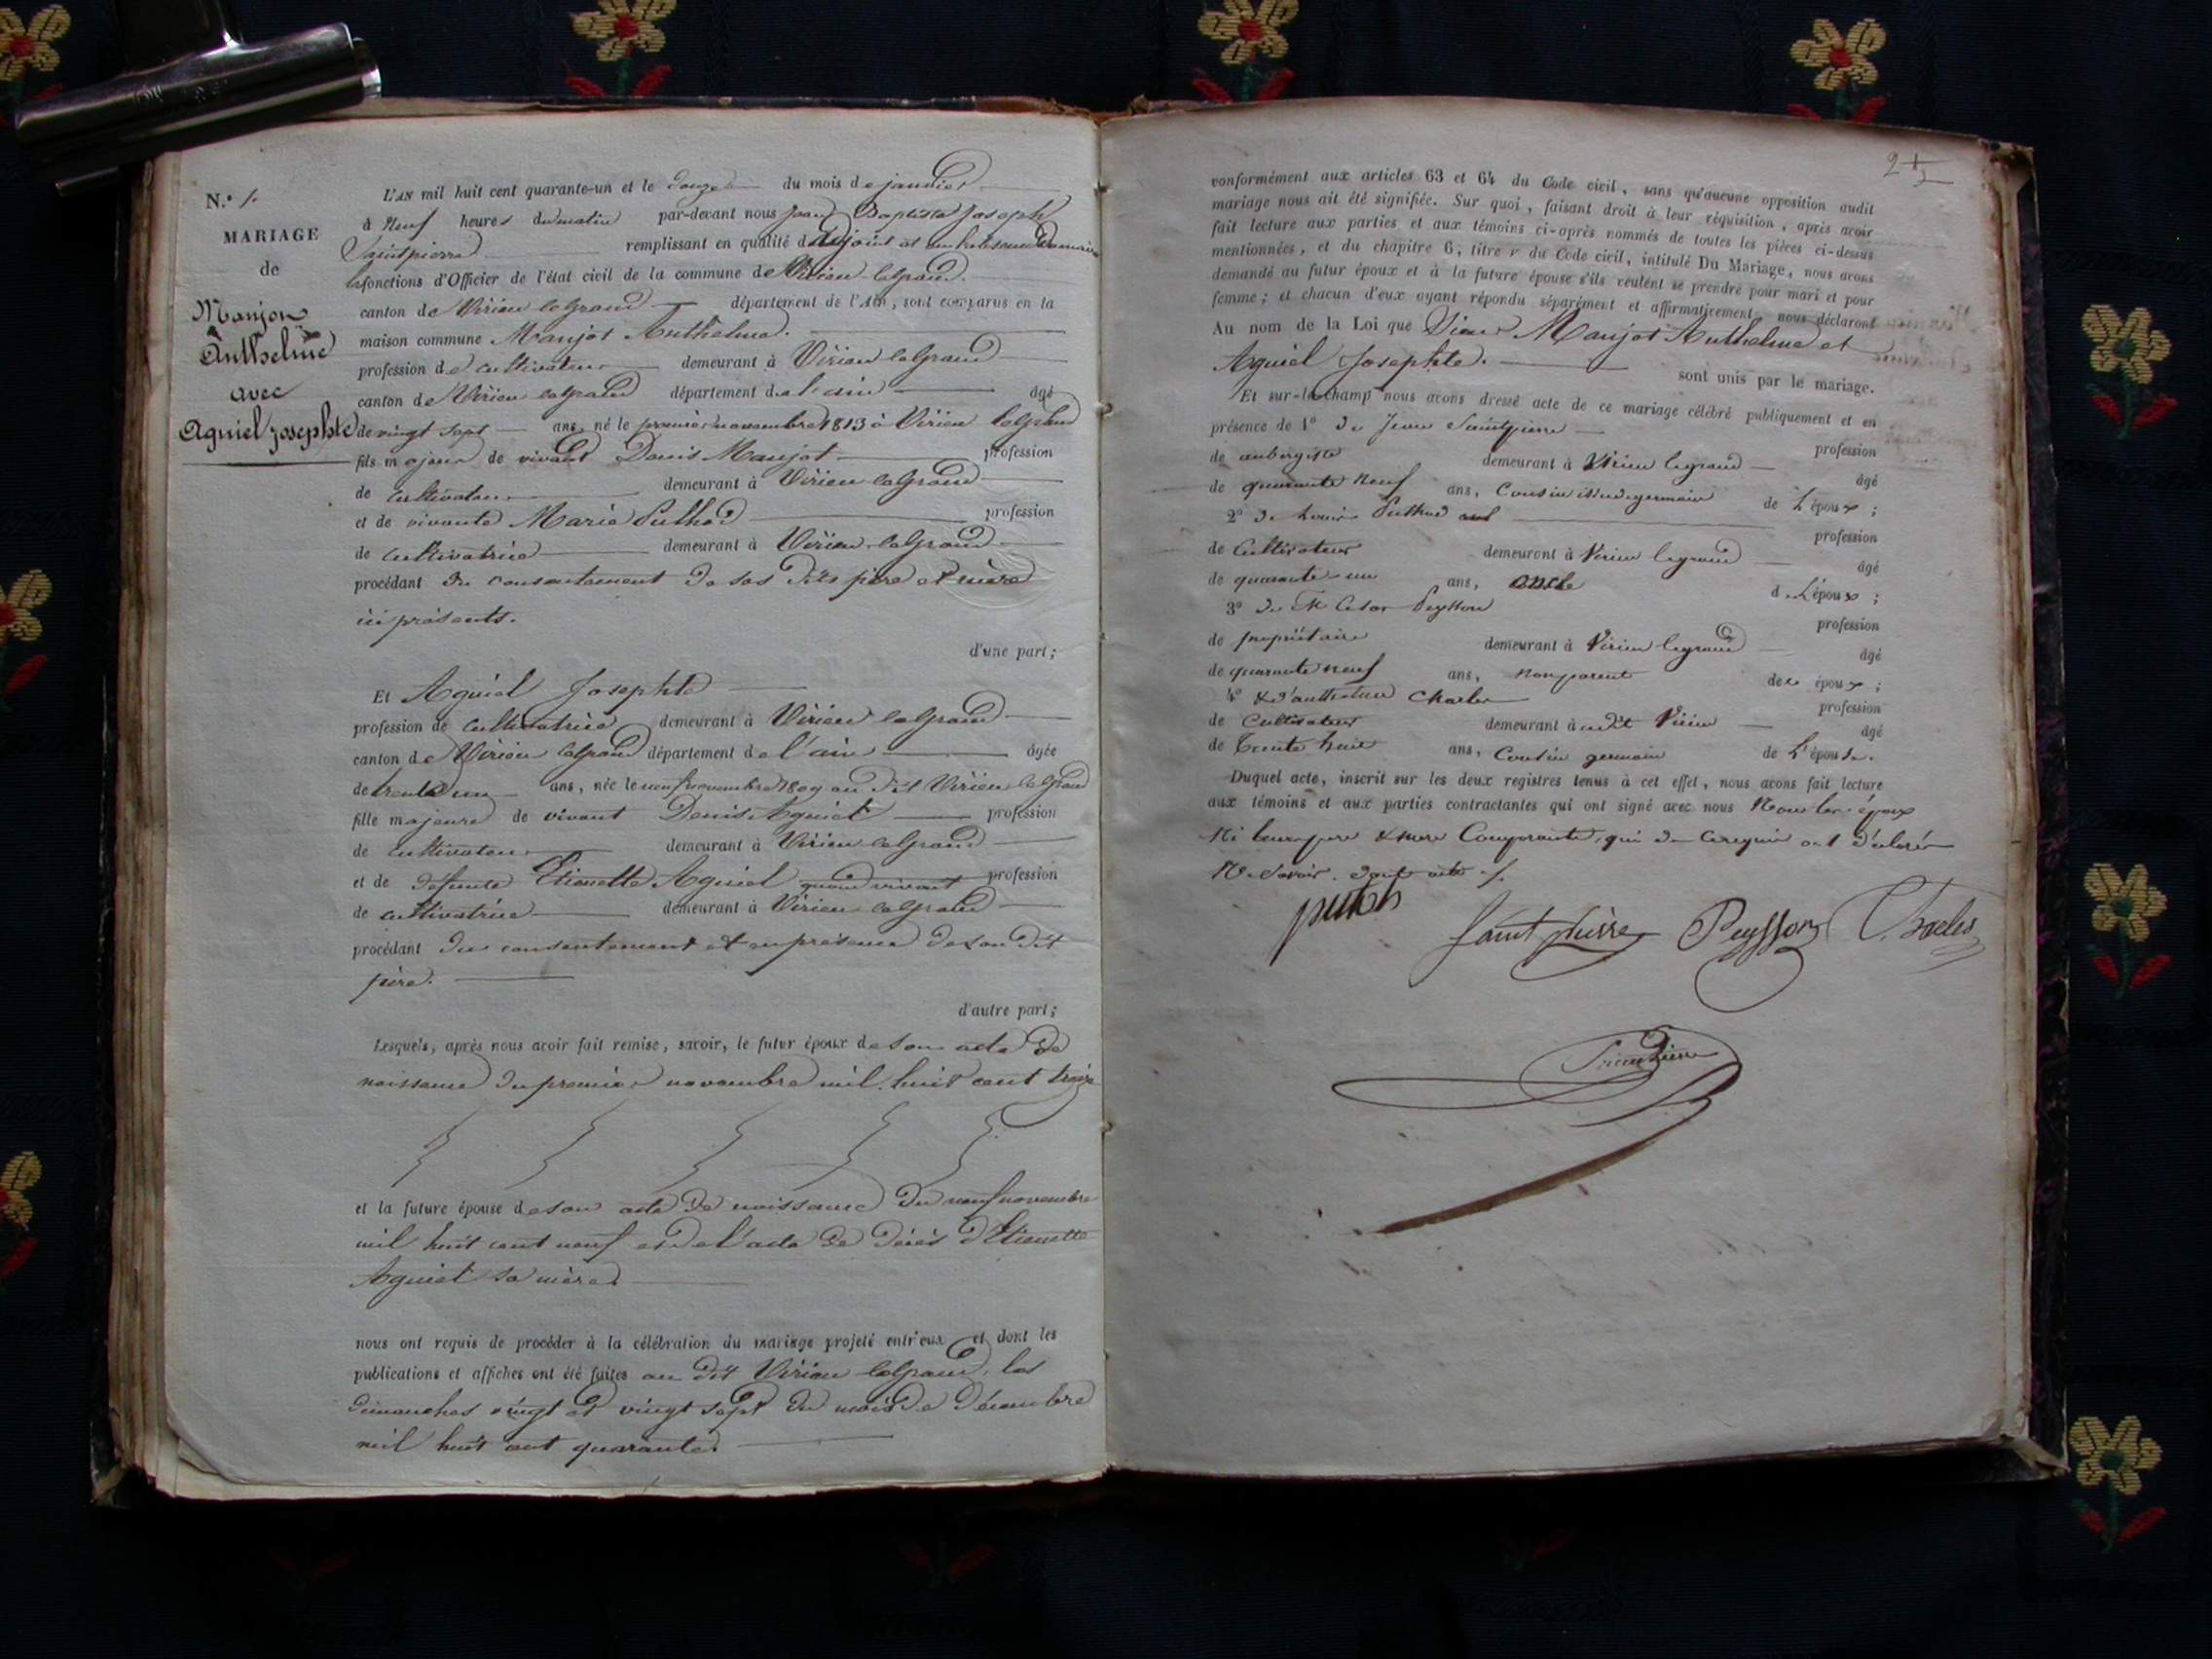 N.° 1.
MARIAGE
de
Manjon
Anthelme
avec
Aguiel Josephte
L'AN mil huit cent quarante-un et le douze du mois de janvier
à neuf heures du matin par-devant nous Jean Baptiste Joseph
Saintpierre remplissant en qualité d'adjoint et en l'absence du maire
les fonctions d'Officier de l'état civil de la commune de Virieu legrand.
canton de Virieu legrand département de l'Ain, sont comparus en la
maison commune Manjot Anthelme.
profession de cultivateur demeurant à Virieu legrand
canton de Virieu legrand département de l'ain âgé
de vingt sept ans, né le premier novembre 1813 à Virieu legrand
fils majeur de vivant Denis Manjot profession
de cultivateur demeurant à Virieu legrand
et de vivante Marie Puthod profession
de cultivatrice demeurant à Virieu legrand
procédant du consentement de ses dits père et mère
ici présents.
d'une part;
Et Aguiel Josephte
profession de cultivatrice demeurant à Virieu legrand
canton de Virieu legrand département de l'ain âgée
de trente un ans, née le neuf novembre 1809 au dit Virieu legrand
fille majeure de vivant Denis Aguiel profession
de cultivateur demeurant à Virieu legrand
et de défunte Etienette Aguiel quand vivait profession
de cultivatrice demeurant à Virieu legrand
procédant du consentement et en présence de son dit
père.
d'autre part;
Lesquels, après nous avoir fait remise, savoir, le futur époux de son acte de
naissance du premier novembre mil huit cent treize
et la future épouse de son acte de naissance du neuf novembre
mil huit cent neuf et de l'acte de décès d'Etienette
Aguiel sa mère.
nous ont requis de procéder à la célébration du mariage projeté entr'eux et dont les
publications et affiches ont été faites au dit Virieu legrand, les
dimanches vingt et vingt sept du mois de décembre
mil huit cent quarante.
conformément aux articles 63 et 64 du Code civil, sans qu'aucune opposition audit
mariage nous ait été signifiée. Sur quoi, faisant droit à leur réquisition, après avoir
fait lecture aux parties et aux témoins ci-après nommés de toutes les pièces ci-dessus
mentionnées, et du chapitre 6, titre v du Code civil, intitulé Du Mariage, nous avons
demandé au futur époux et à la future épouse s'ils veulent se prendre pour mari et pour
femme; et chacun d'eux ayant répondu séparément et affirmativement, nous déclarons
Au nom de la Loi que Manjot Anthelme et
Aguiel Josephte. sont unis par le mariage.
Et sur-le-champ nous avons dressé acte de ce mariage célébré publiquement et en
présence de 1° de Jean Saintpierre
profession
de aubergiste demeurant à Virieu legrand âgé
de quarante neuf ans, Cousin issu degermain de l'époux;
2° de Louis Puthod
profession
de Cultivateur demeurant à Virieu legrand âgé
de quarante-un ans, oncle de L'époux;
3° de M Cesar Peysson
profession
de propriétaire demeurant à Virieu legrand âgé
de quarante neuf ans, non parent des époux;
4° & d'anthelme Charles
profession
de Cultivateur demeurant à audit Virieu âgé
de Trente huit ans, Cousin germain de L'épouse.
Duquel acte, inscrit sur les deux registres tenus à cet effet, nous avons fait lecture
aux témoins et aux parties contractantes qui ont signé avec nous Non les époux
Ni leurs pere & mere Comparants, qui de ce requis ont déclaré
Ne Savoir. dont acte
Saint pierre Peysson Charles